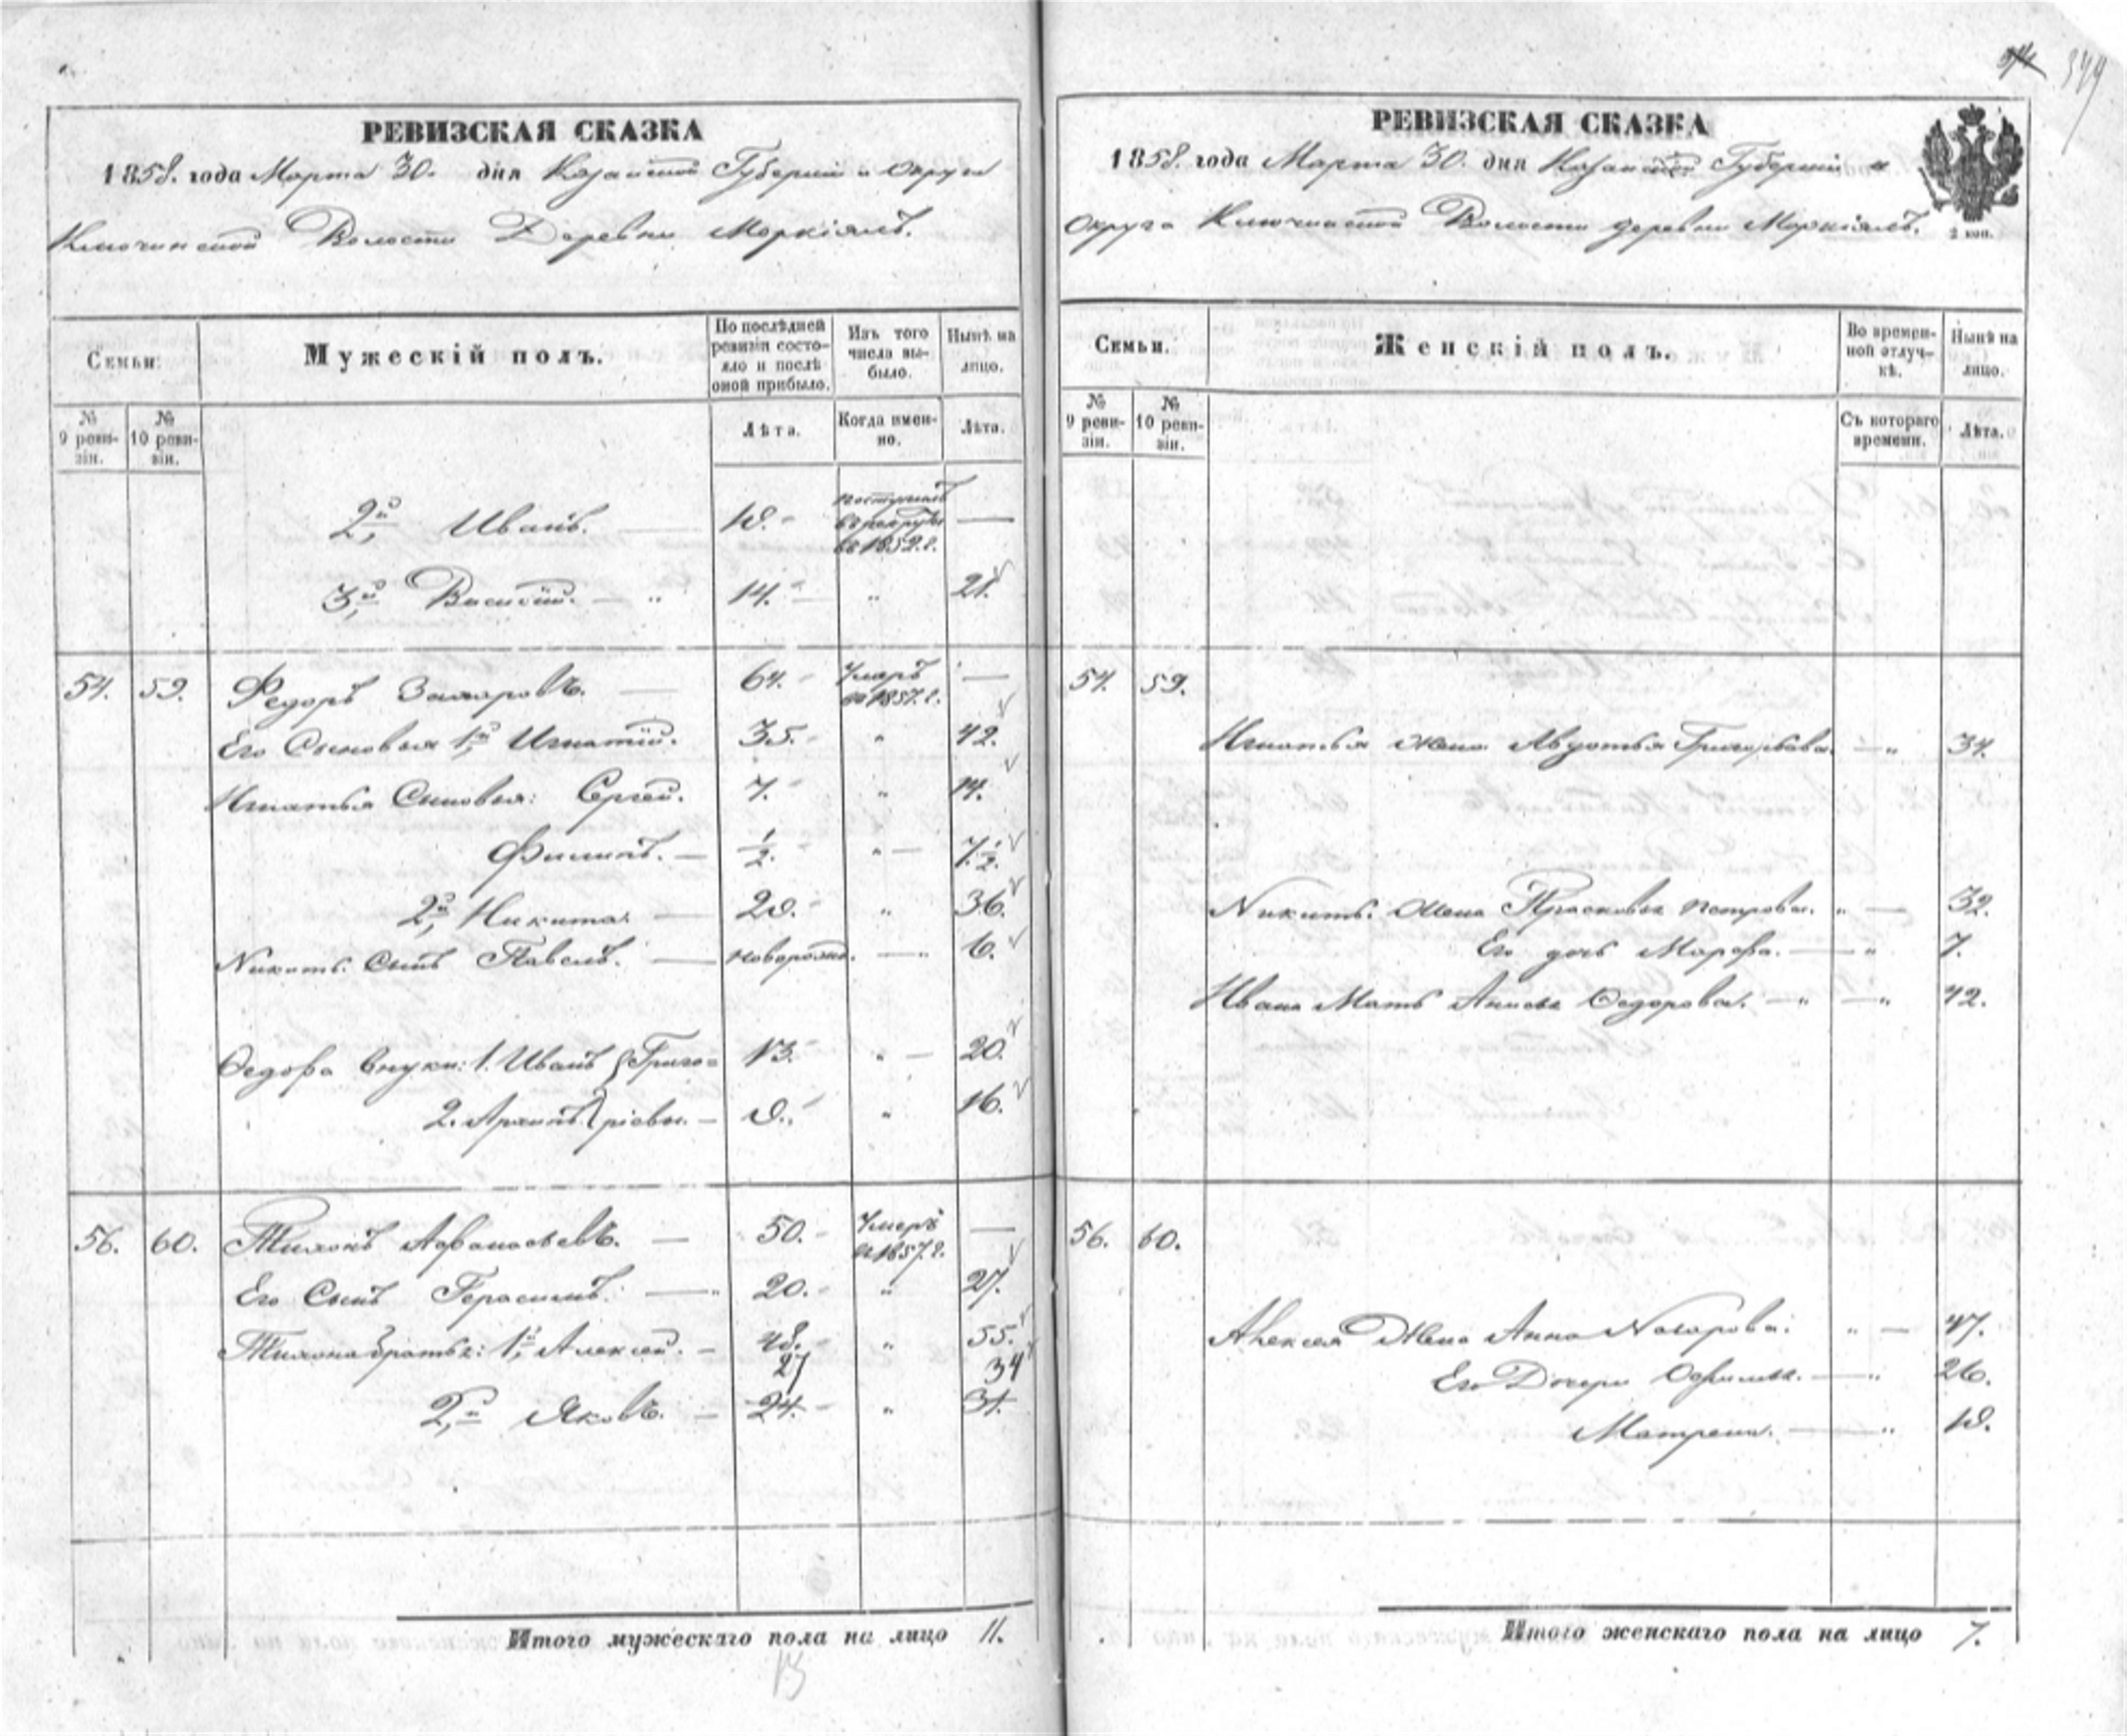 544
РЕВИЗСКАЯ СКАЗКА
1858. года Марта 30. дня Казанской Губерніи и Округа
Ключинской Волости Деревни Меркіялъ.
Семьи.
Мужескій полъ.
По послѣдней ревизіи состояло и послѣ оной прибыло.
Изъ того числа выбыло.
Нынѣ на лицо.
№ 9 ревизіи.
№ 10 ревизіи.
Лѣта.
Когда именно.
Лѣта.
2й Иванъ. — 18. поступилъ въ рекруты въ 1852. г. —
3й Василій. — " 14. — " 21.
54. 59. Федоръ Захаровъ. — 64. Умеръ въ 1857. г. —
Его Сыновья 1й Игнатій. 35. " 42.
Игнатья Сыновья: Сергей. 7. " 14.
Филипъ. — 1/2. " — 7 1/2.
2й Никита. — 29. " 36.
Никиты Сынъ Павелъ. — новорожд. — " 6.
Ѳедора внуки: 1. Иванъ Григо= 13. " — 20.
2. Архипъ ріевы. — 9. " 16.
56. 60. Тихонъ Афанасьевъ. — 50. Умеръ въ 1857. г. —
Его Сынъ Герасимъ. — " 20. " 27.
Тихона братья: 1й Алексей. — 48. " 55.
27 34
2й Яковъ. — 24. " 31.
Итого мужескаго пола на лицо 11.
13
РЕВИЗСКАЯ СКАЗКА
1858. года Марта 30. дня Казанской Губерніи и
Округа Ключинской Волости деревни Меркіялъ.
2 коп.
Семьи.
Женскій полъ.
Во временной отлучкѣ.
Нынѣ на лицо.
№ 9 ревизіи.
№ 10 ревизіи.
Съ котораго времени.
Лѣта.
54. 59.
Игнатья жена Авдотья Григорьева. — " 34.
Никиты жена Прасковья Петрова. " — 32.
Его дочь Марфа. — " 7.
Ивана Мать Анисья Ѳедорова. — " — " 42.
56. 60.
Алексея Жена Анна Назарова. " — 47.
Его Дочери Офимья. — " 26.
Матрена. — " 18.
Итого женскаго пола на лицо 7.